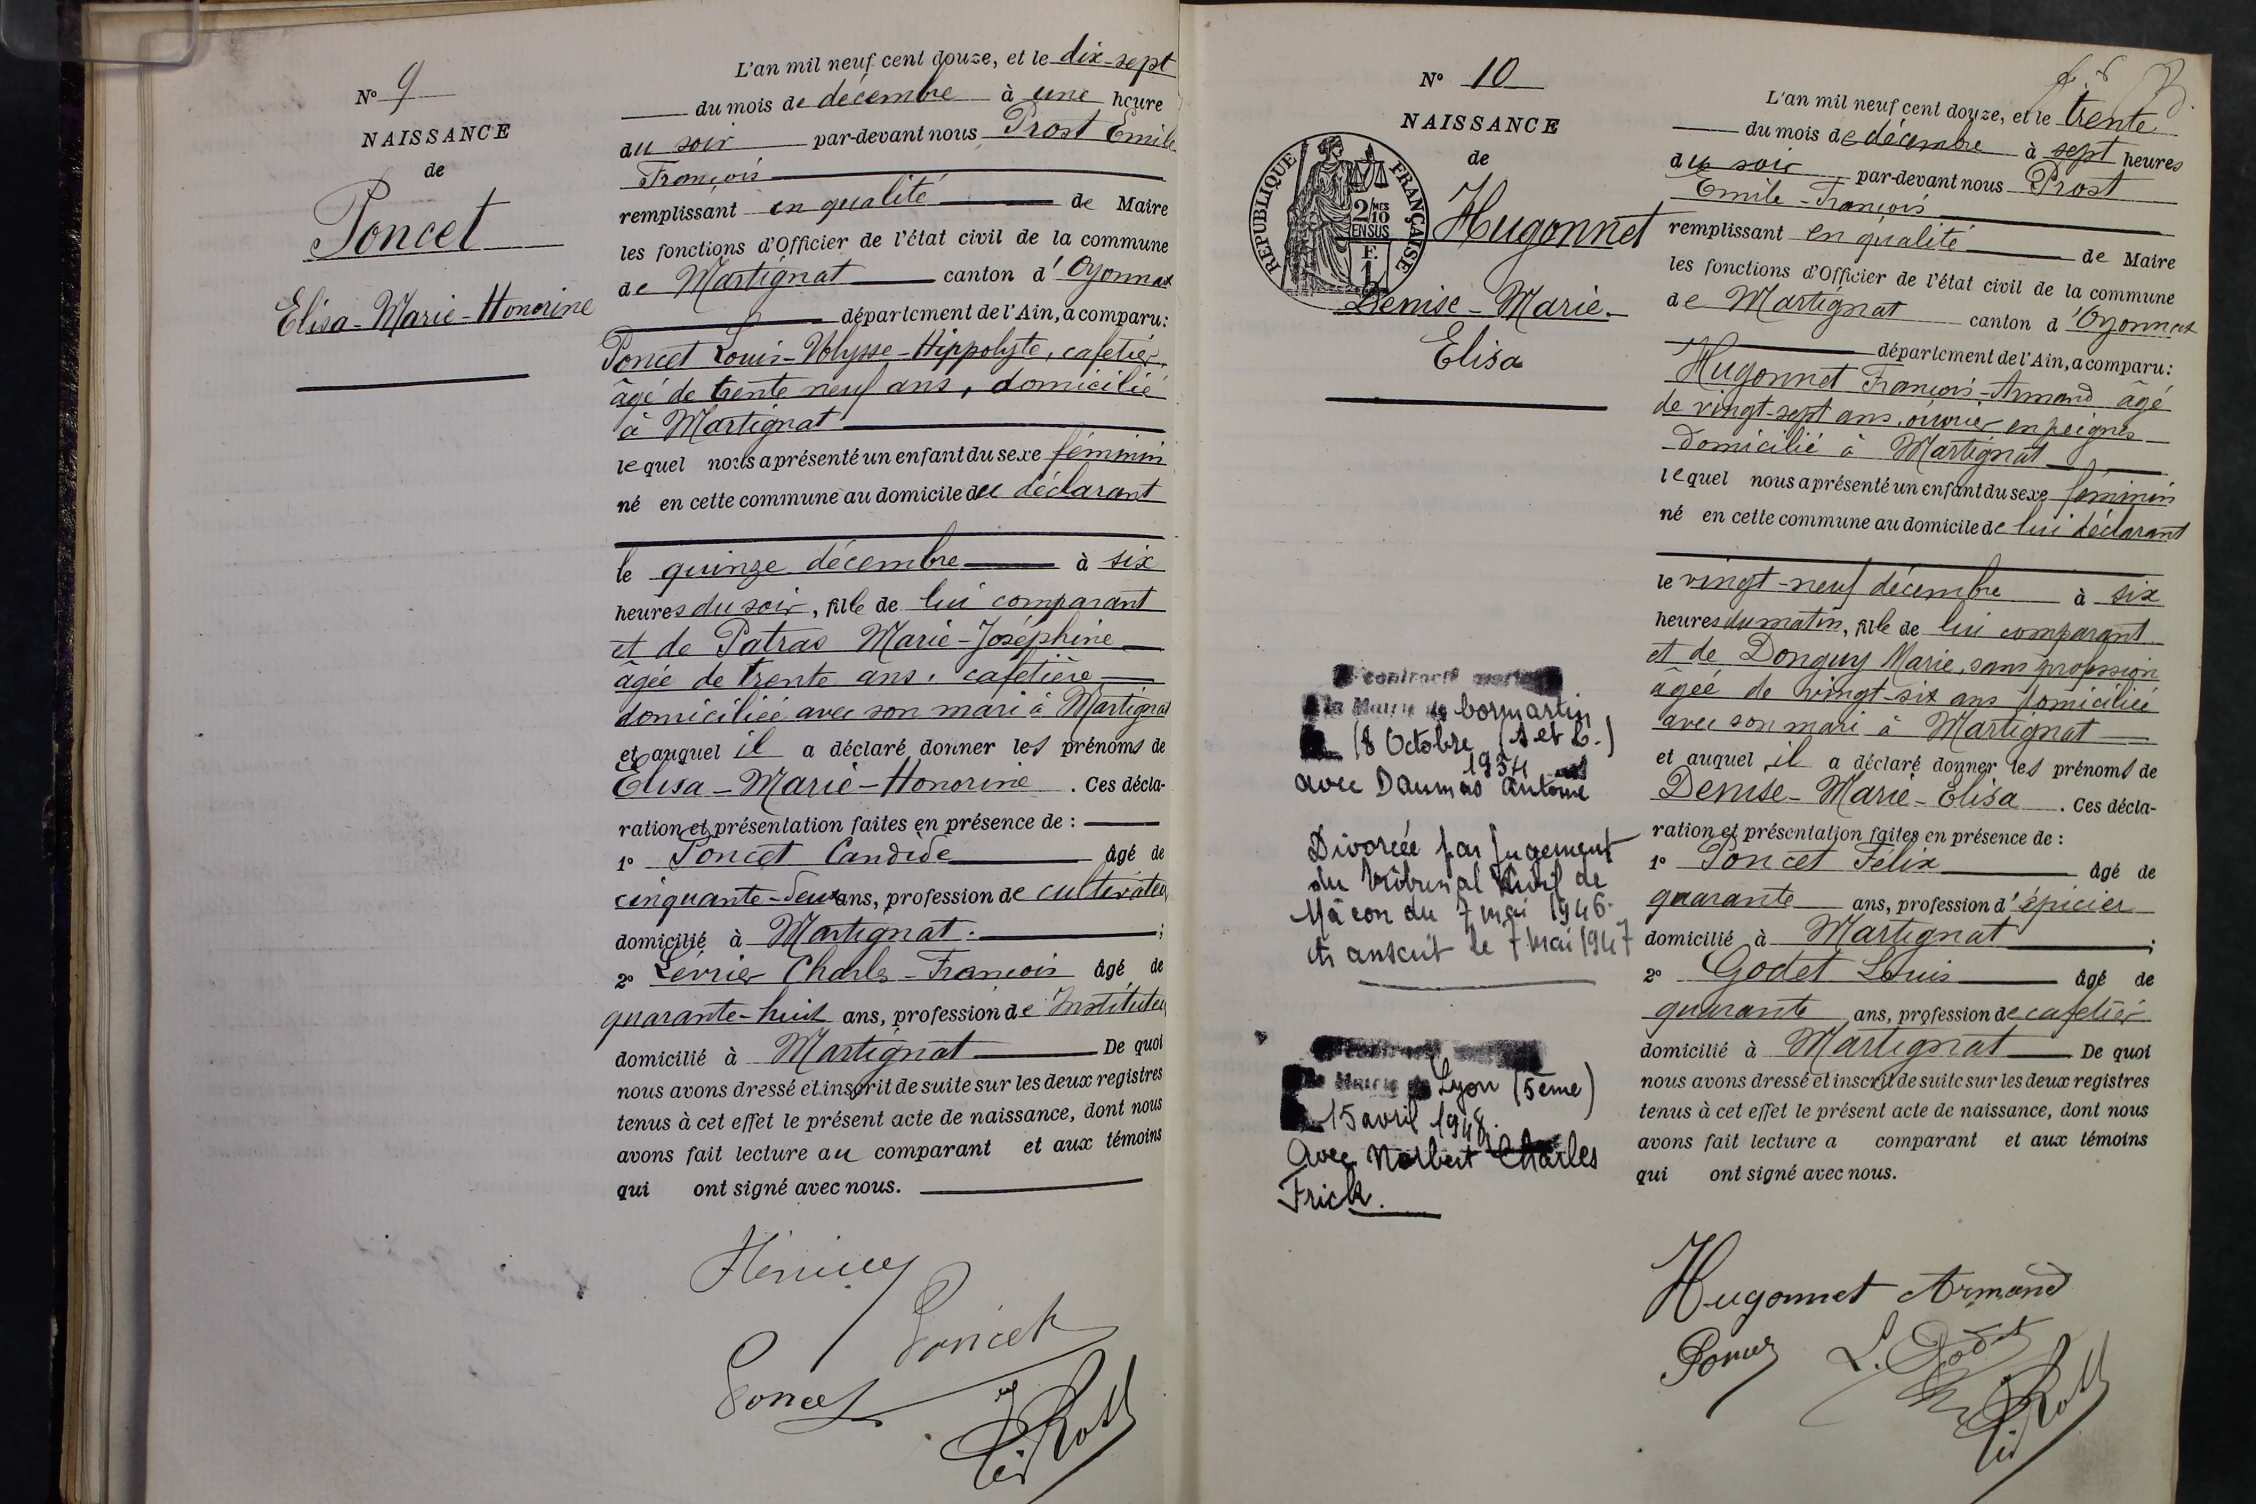 N° 9
NAISSANCE
de
Poncet
Elisa-Marie-Honorine
L'an mil neuf cent douze, et le dix-sept
du mois de décembre à une heure
du soir par-devant nous Prost Emile
François
remplissant en qualité de Maire
les fonctions d'Officier de l'état civil de la commune
de Martignat canton d'Oyonnax
département de l'Ain, a comparu:
Poncet Louis-Ulysse-Hippolyte, cafetier,
âgé de trente neuf ans, domicilié
à Martignat
lequel nous a présenté un enfant du sexe féminin
né en cette commune au domicile du déclarant
le quinze décembre à six
heures du soir, fille de lui comparant
et de Patras Marie-Joséphine
âgée de trente ans, cafetière
domiciliée avec son mari à Martignat
et auquel il a déclaré donner les prénoms de
Elisa-Marie-Honorine. Ces décla-
ration et présentation faites en présence de:
1° Poncet Candide âgé de
cinquante-deux ans, profession de cultivateur
domicilié à Martignat.;
2° Levrier Charles-François âgé de
quarante-huit ans, profession de Instituteur
domicilié à Martignat De quoi
nous avons dressé et inscrit de suite sur les deux registres
tenus à cet effet le présent acte de naissance, dont nous
avons fait lecture au comparant et aux témoins
qui ont signé avec nous.
Poncet
Poncet
N° 10
NAISSANCE
de
REPUBLIQUE FRANÇAISE
2/MES
10
EN SUS
Hugonnet
Denise-Marie-
Elisa
contracté mariage
à la Mairie de Cormartin
18 Octobre (S et L.)
1934
avec Daumas Antoine
Divorcée par Jugement
du Tribunal Civil de
Mâcon du 7 mai 1946.
transcrit le 7 Mai 1947
contracté mariage
Mairie de Lyon (5ème)
15 avril 1948.
avec Norbert Charles
Frick.
L'an mil neuf cent douze, et le trente
du mois de décembre à sept heures
du soir par-devant nous Prost
Emile-François
remplissant en qualité de Maire
les fonctions d'Officier de l'état civil de la commune
de Martignat canton d'Oyonnax
département de l'Ain, a comparu:
Hugonnet François-Armand âgé
de vingt-sept ans, ouvrier en peignes
domicilié à Martignat
lequel nous a présenté un enfant du sexe féminin
né en cette commune au domicile de lui déclarant
le vingt-neuf décembre à six
heures du matin, fille de lui comparant
et de Donguy Marie, sans profession
âgée de vingt-six ans domiciliée
avec son mari à Martignat
et auquel il a déclaré donner les prénoms de
Denise-Marie-Elisa. Ces décla-
ration et présentation faites en présence de:
1° Poncet Félix âgé de
quarante ans, profession d'épicier
domicilié à Martignat;
2° Godet Louis âgé de
quarante ans, profession de cafetier
domicilié à Martignat De quoi
nous avons dressé et inscrit de suite sur les deux registres
tenus à cet effet le présent acte de naissance, dont nous
avons fait lecture a comparant et aux témoins
qui ont signé avec nous.
Hugonnet Armand
Poncet
L. Godet